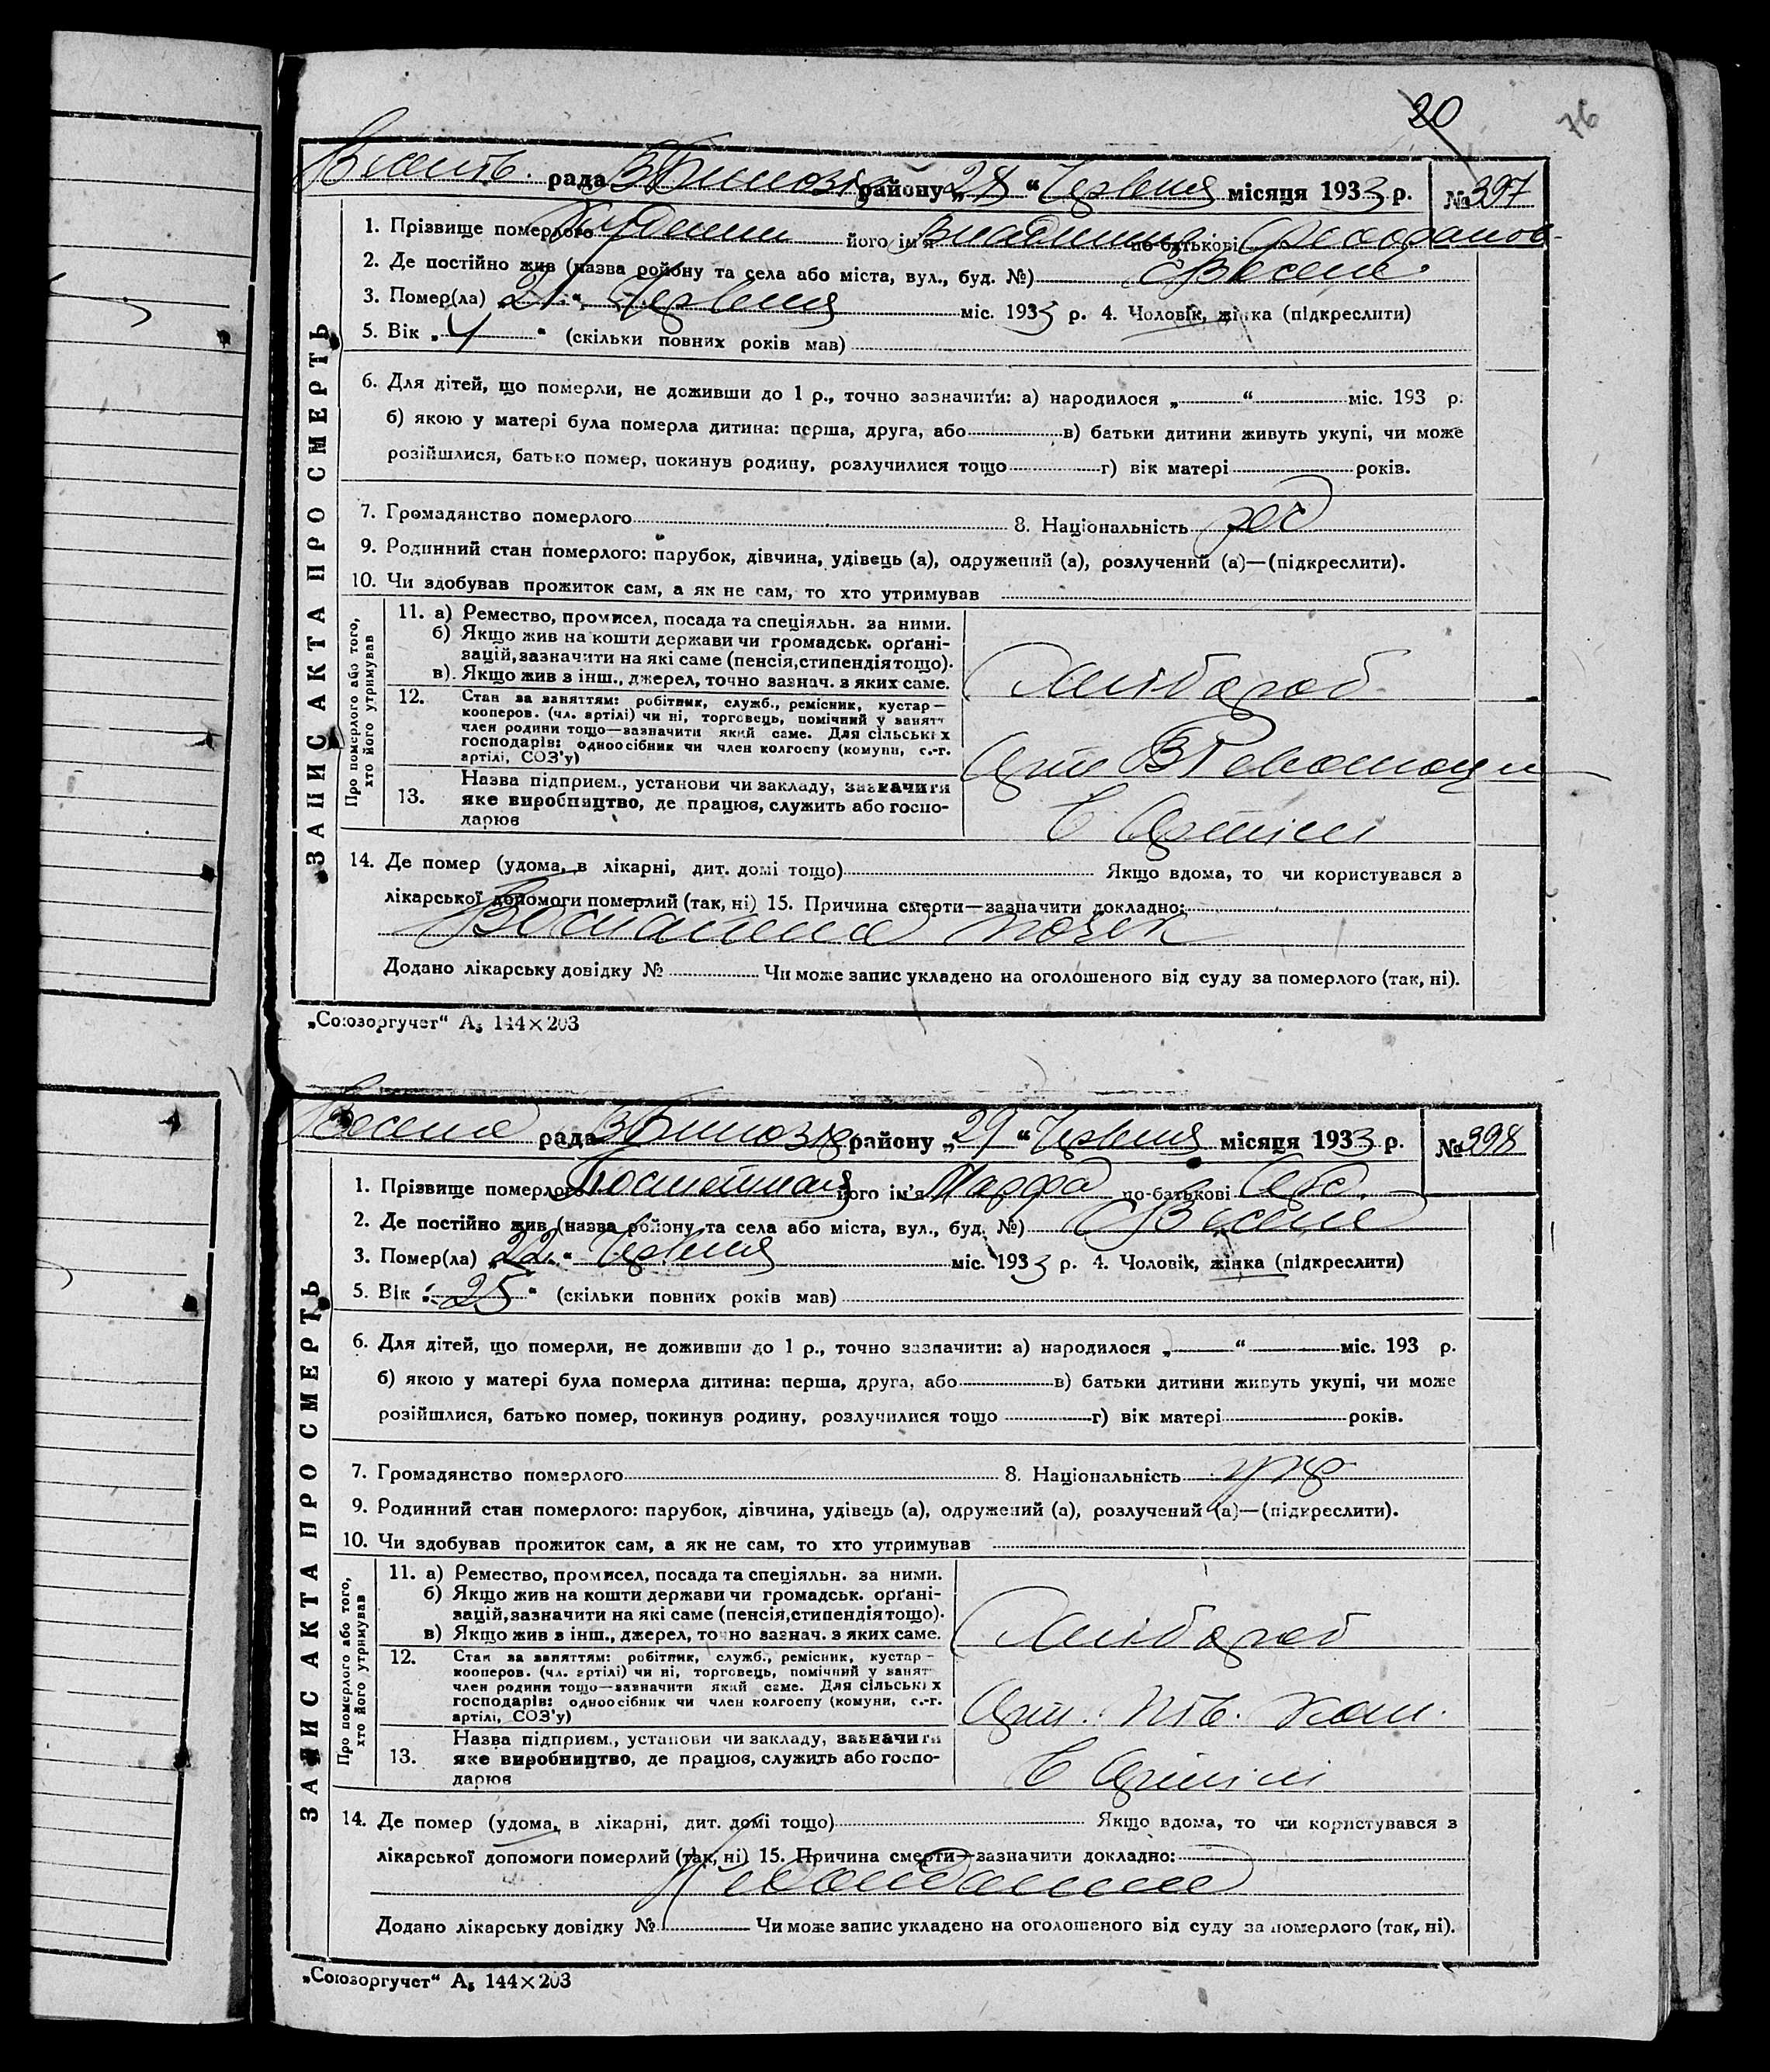 20 76
рада В Білозір району „28“ Червня місяця 1933 р. № 397
ЗАПИС АКТА ПРО СМЕРТЬ
1. Прізвище померлого його ім'я по-батькові
2. Де постійно жив (назва району та села або міста, вул., буд. №) с Веселе
3. Помер(ла) „21“ Червня міс. 1933 р. 4. Чоловік, жінка (підкреслити)
5. Вік „4“ (скільки повних років мав)
6. Для дітей, що померли, не доживши до 1 р., точно зазначити: а) народилося „ “ міс. 193 р.
б) якою у матері була померла дитина: перша, друга, або в) батьки дитини живуть укупі, чи може
розійшлися, батько помер, покинув родину, розлучилися тощо г) вік матері років.
7. Громадянство померлого 8. Національність рос
9. Родинний стан померлого: парубок, дівчина, удівець (а), одружений (а), розлучений (а)—(підкреслити).
10. Чи здобував прожиток сам, а як не сам, то хто утримував
Про померлого або того,
хто його утримував
11. а) Ремество, промисел, посада та спеціяльн. за ними.
б) Якщо жив на кошти держави чи громадськ. орґані-
зацій, зазначити на які саме (пенсія, стипендія тощо).
в) Якщо жив з інш., джерел, точно зазнач. з яких саме.
Хлібороб
12. Стан за заняттям: робітник, служб., ремісник, кустар—
кооперов. (чл. артілі) чи ні, торговець, помічний у занятт
член родини тощо—зазначити який саме. Для сільських
господарів: одноосібник чи член колгоспу (комуни, с.-г.
артілі, СОЗ'у)
Арт
13. Назва підприєм., установи чи закладу, зазначити
яке виробництво, де працює, служить або госпо-
дарює
в Артілі
14. Де помер (удома, в лікарні, дит. домі тощо) Якщо вдома, то чи користувався з
лікарської допомоги померлий (так, ні) 15. Причина смерти—зазначити докладно:
почек
Додано лікарську довідку № Чи може запис укладено на оголошеного від суду за померлого (так, ні).
„Союзоргучет“ А₅ 144×203
Веселе рада В Білозір району „29“ Червня місяця 1933 р. № 398
ЗАПИС АКТА ПРО СМЕРТЬ
1. Прізвище померлого його ім'я Марфа по-батькові
2. Де постійно жив (назва району та села або міста, вул., буд. №) с Веселе
3. Помер(ла) „22“ Червня міс. 1933 р. 4. Чоловік, жінка (підкреслити)
5. Вік „25“ (скільки повних років мав)
6. Для дітей, що померли, не доживши до 1 р., точно зазначити: а) народилося „ “ міс. 193 р.
б) якою у матері була померла дитина: перша, друга, або в) батьки дитини живуть укупі, чи може
розійшлися, батько помер, покинув родину, розлучилися тощо г) вік матері років.
7. Громадянство померлого 8. Національність укр
9. Родинний стан померлого: парубок, дівчина, удівець (а), одружений (а), розлучений (а)—(підкреслити).
10. Чи здобував прожиток сам, а як не сам, то хто утримував
Про померлого або того,
хто його утримував
11. а) Ремество, промисел, посада та спеціяльн. за ними.
б) Якщо жив на кошти держави чи громадськ. орґані-
зацій, зазначити на які саме (пенсія, стипендія тощо).
в) Якщо жив з інш., джерел, точно зазнач. з яких саме.
Хлібороб
12. Стан за заняттям: робітник, служб., ремісник, кустар—
кооперов. (чл. артілі) чи ні, торговець, помічний у занят
член родини тощо—зазначити який саме. Для сільських
господарів: одноосібник чи член колгоспу (комуни, с.-г.
артілі, СОЗ'у)
Арт.
13. Назва підприєм., установи чи закладу, зазначити
яке виробництво, де працює, служить або госпо-
дарює
в Артілі
14. Де помер (удома, в лікарні, дит. домі тощо) Якщо вдома, то чи користувався з
лікарської допомоги померлий (так, ні) 15. Причина смерти—зазначити докладно:
Додано лікарську довідку № Чи може запис укладено на оголошеного від суду за померлого (так, ні).
„Союзоргучет“ А₅ 144×203